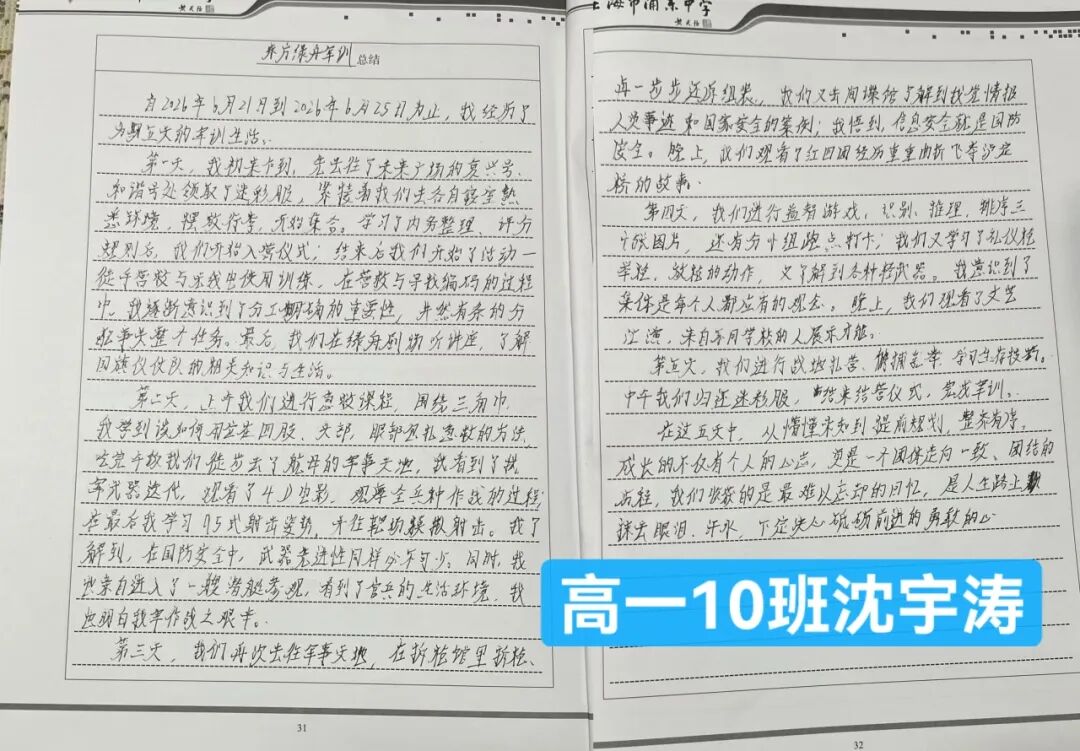 上海市浦东中学
东方绿舟军训总结
自2026年6月21日到2026年6月25日为止，我经历了
为期五天的军训生活。
第一天，我初来乍到，先去往了未来广场的复兴号、
和谐号处领取了迷彩服，紧接着我们去各自寝室熟
悉环境，摆放行李，开始集合。学习了内务整理、评分
规则后，我们开始入营仪式；结束后我们开始了活动一
徒手营救与乐成电使用训练，在营救与寻找编码的过程
中，我逐渐意识到了分工明确的重要性，井然有条的分
配事关整个任务。最后，我们在绿舟剧场听讲座，了解
国旗仪仗队的相关知识与生活。
第二天，上午我们进行急救课程，围绕三角巾，
我学到该如何用它在四肢、头部、眼部包扎急救的方法，
吃完午饭我们徒步去了航母的军事天地，我看到了我
军武器迭代，观看了4D电影，观海全兵种作战的过程，
在最后我学习95式射击姿势，并往靶场模拟射击。我了
解到，在国防安全中，武器先进性同样必不可少。同时，我
也亲自进入了一艘潜艇参观，看到了官兵的生活环境，我
也明白我军作战之艰辛。
第三天，我们再次去往军事天地，在拆枪馆里拆枪、
31
再一步步还原组装，我们又去间谍馆了解到我党情报
人员事迹和国家安全的案例；我悟到，信息安全就是国防
安全。晚上，我们观看了红四团经历重重曲折飞夺泸定
桥的故事。
第四天，我们进行益智游戏，识别、推理、排序三
十张图片，还有分小组跑点打卡；我们又学习了礼仪枪
举枪、放枪的动作，又了解到各种轻武器。我意识到了
集体是每个人都应有的观念。晚上，我们观看了文艺
汇演，来自不同学校的人展示才能。
第五天，我们进行战地扎营、学习生存技能。
中午我们归还迷彩服，结束结营仪式，完成军训。
在这五天中，从懵懂未知到提前规划，整齐有序。
成长的不仅有个人的心志，更是一个团体走向一致、团结的
历程，我们收获的是最难以忘却的回忆，是人生路上
抹去眼泪、汗水，下定决心砥砺前进的勇敢的心
32
高一10班沈宇涛